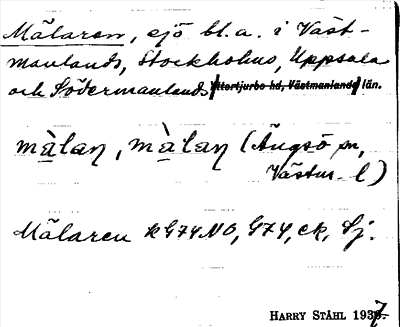 Mälaren, sjö bl.a. i Väst-
manlands, Stockholms, Uppsala
och Södermanlands Yttertjurbo hd, Västmanlands län.
màlaŋ, màlaŋ (Ängsö sn,
Västm. l)
Mälaren kG74NO, G74, ek, Sj.
HARRY STÅHL 1937.